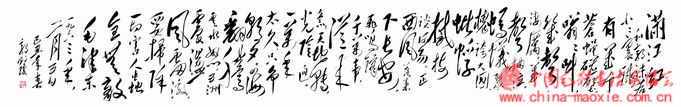 满江红
和郭沫若
小小寰球
有几个
苍蝇碰壁
嗡嗡叫
几声凄厉
几声抽泣
蚂蚁缘槐夸大国
蚍蜉
撼树
谈何易正
西风落叶
下长安
飞鸣镝
多少事
从来急
天地转
光阴迫
一万年
太久只争
朝夕四海
翻腾
云水怒五洲
震荡
风雷激
要扫除
一切害人虫
全无敌
毛泽东
一九六三年
中国毛体书法艺术网
www.china-maoxie.com.cn